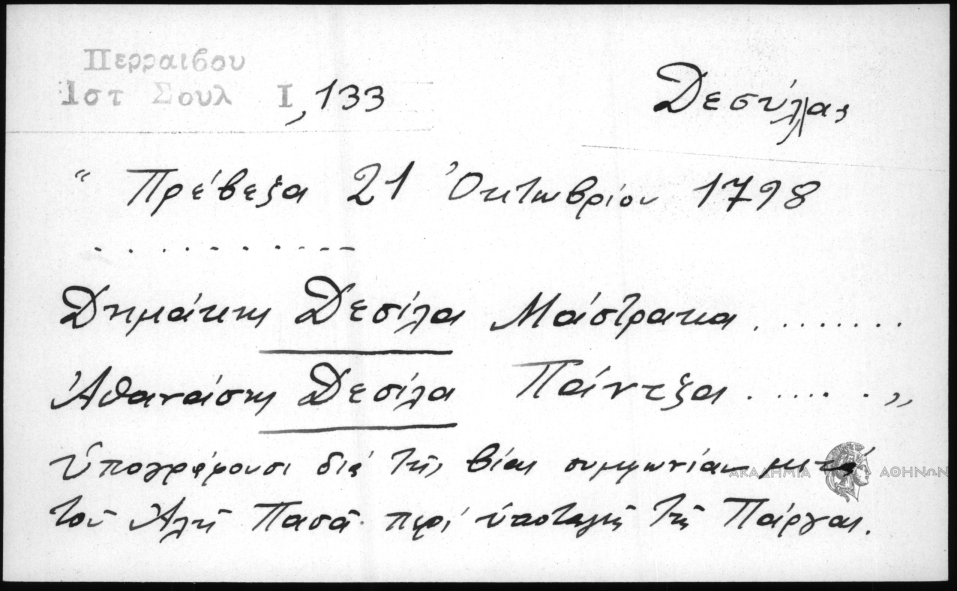 Περραιβου
Ιστ Σουλ Ι, 133
Δεσύλας
" Πρέβεζα 21 Ὀκτωβρίου 1798
. . . . . . . . . . .
Δημάκης Δεσίλα Μάστρακα . . . . . . .
Ἀθανάσης Δεσίλα Πάντεζα . . . . . . "
Ὑπογράφουσι διά τῆς βίας συμφωνίαν μετά
τοῦ Ἀλῆ Πασᾶ περί ὑποταγῆς τῆς Πάργας.
ΑΚΑΔΗΜΙΑ ΑΘΗΝΩΝ